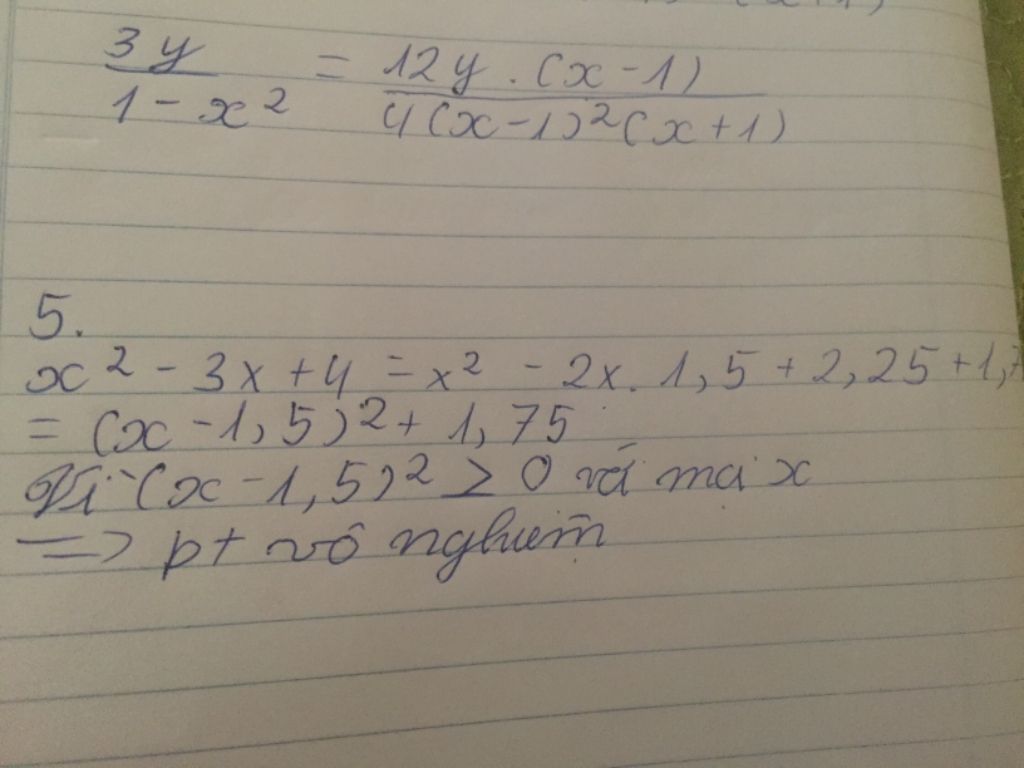 3y / 1 - x² = 12y . (x - 1) / 4(x - 1)²(x + 1)
5.
x² - 3x + 4 = x² - 2x . 1,5 + 2,25 + 1,7
= (x - 1,5)² + 1,75
Vì (x - 1,5)² ≥ 0 vớ mọi x
=> pt vô nghiệm